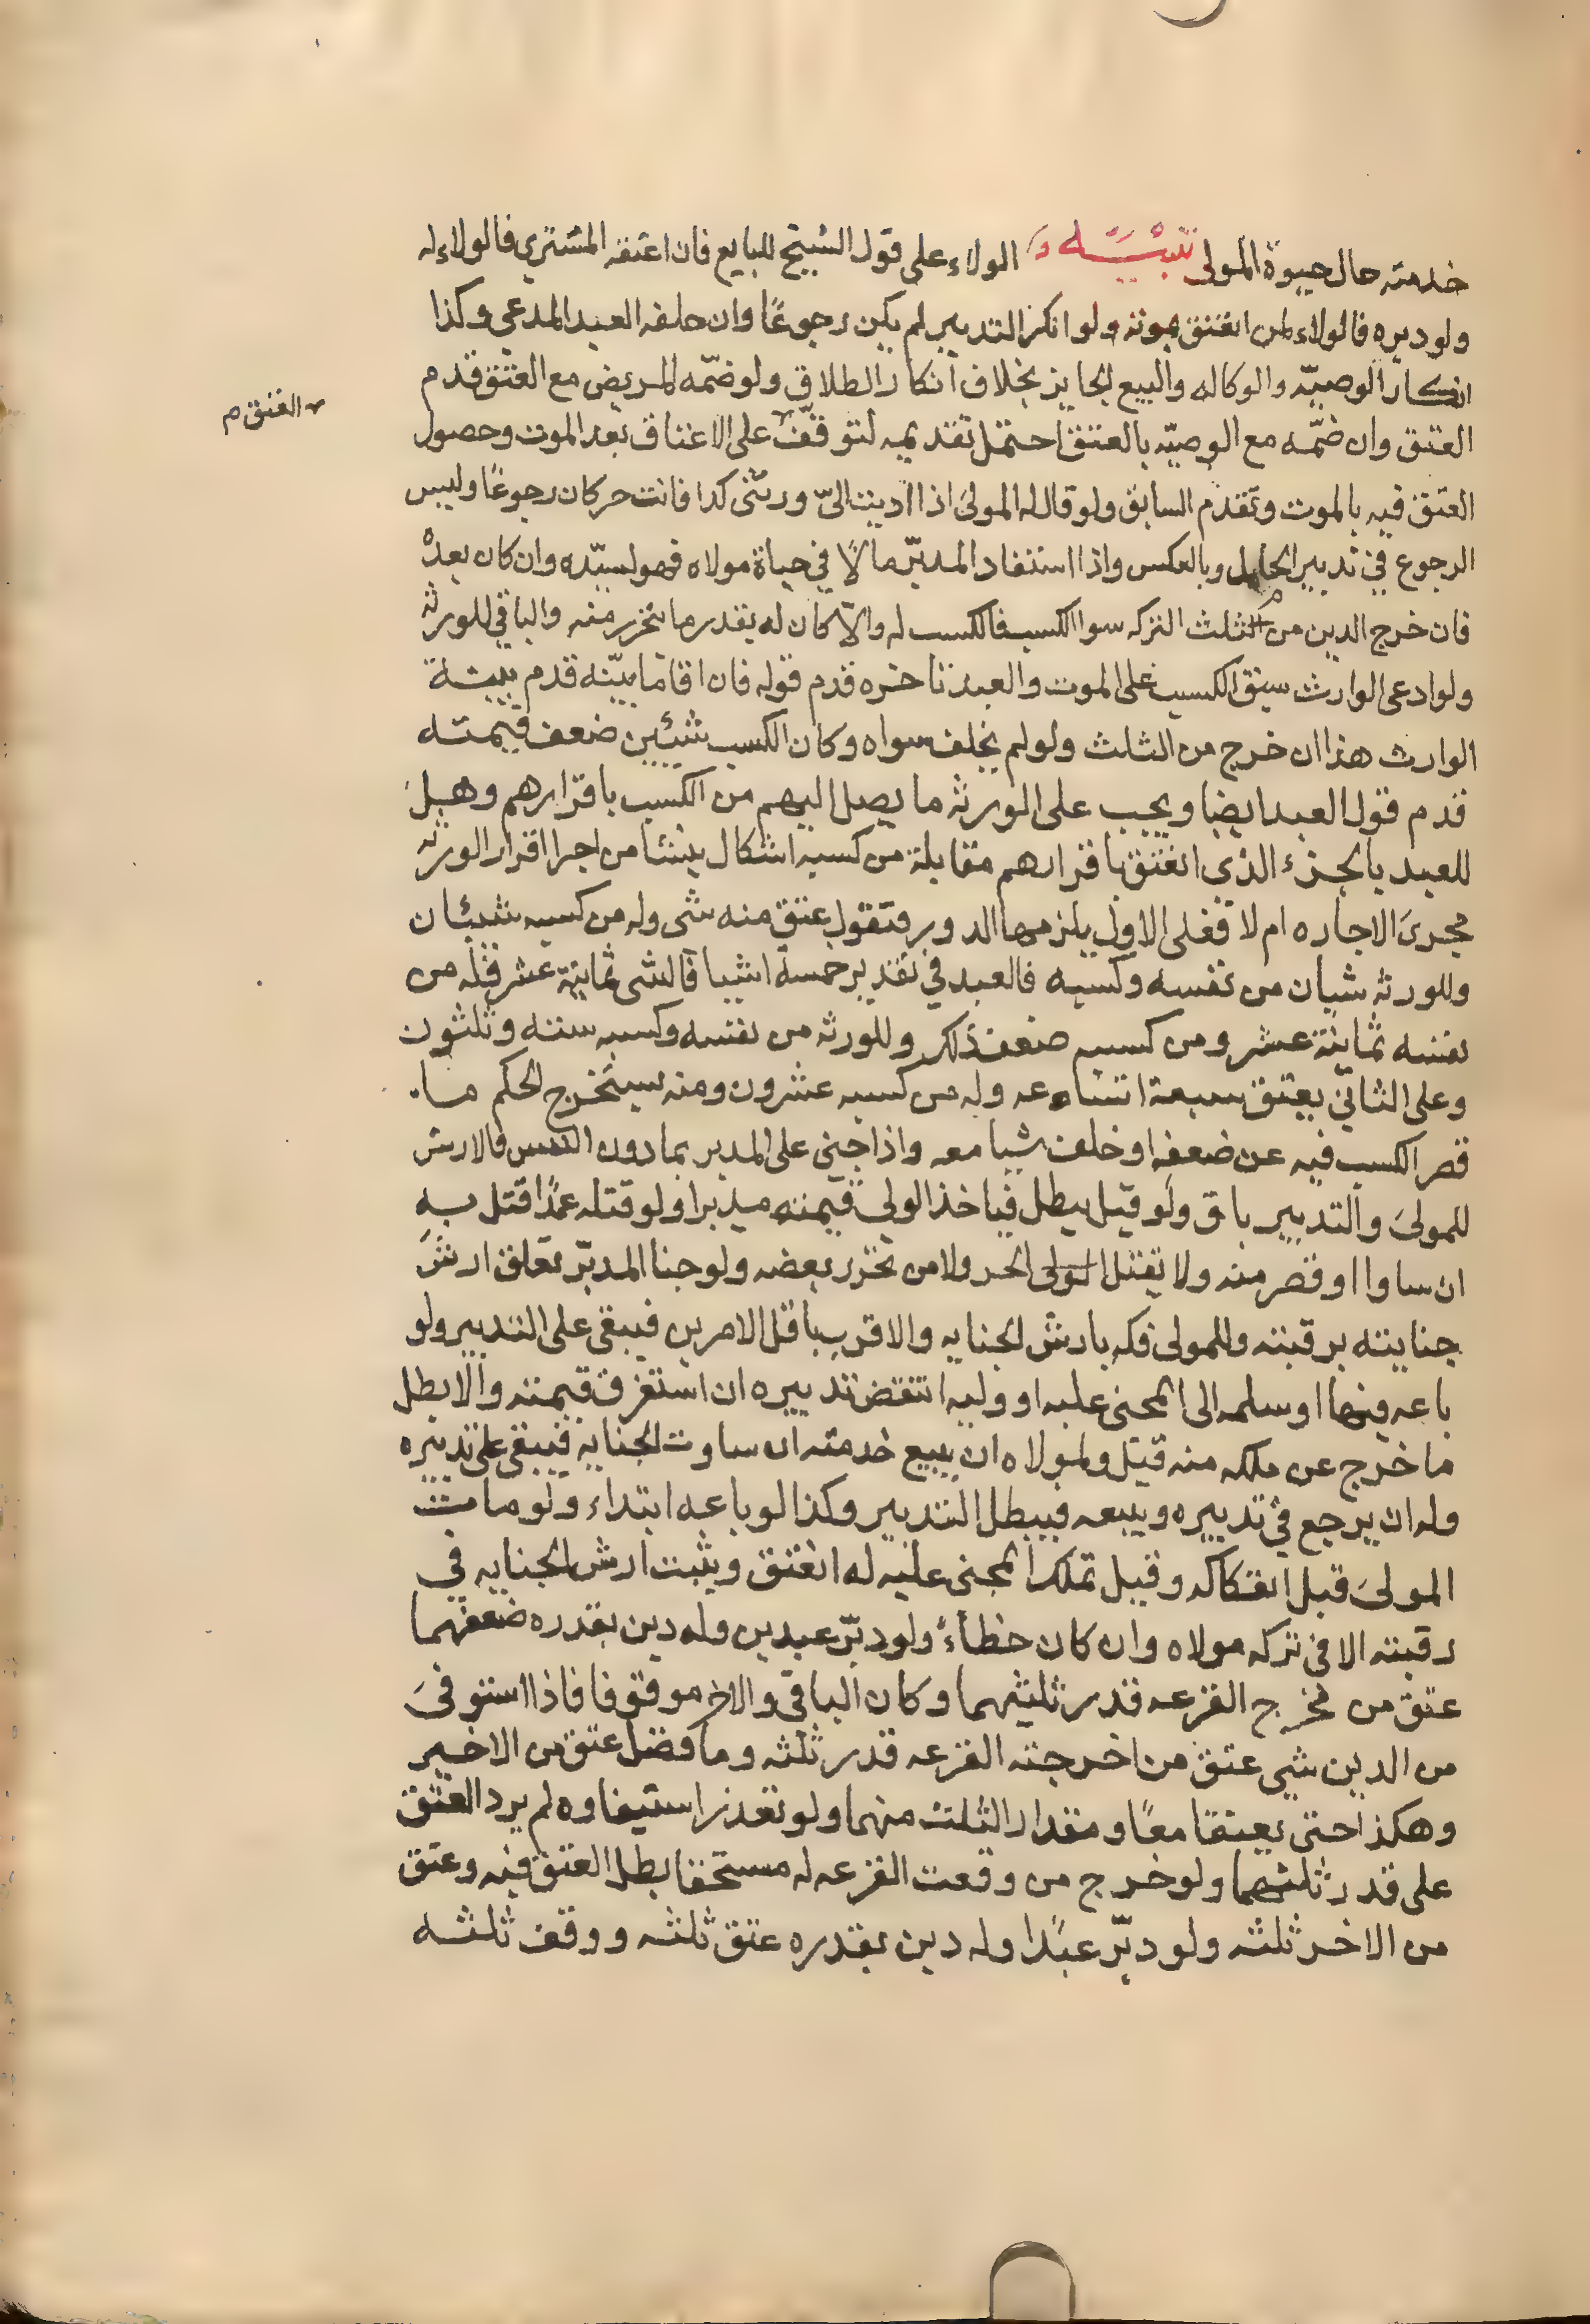 خدمته حال حيوة المولى تنبيه و الولاء على قول الشيخ للبايع فان اعتقه المشتري فالولاء له
ولو دبره فالولاء لمن انعتق بموته ولو انكر التدبير لم يكن رجوعًا وان حلفه العبد المدعي وكذا
انكار الوصيّه والوكاله والبيع الجايز بخلاف انكار الطلاق ولو ضمّه المريض مع العتق قدم
العتق وان ضمّه مع الوصيّه بالعتق احتمل تقديمه لتوقّف على الاعتاق بعد الموت وحصول
العتق م
العتق فيه بالموت وتقدم السابق ولو قال له المولى اذا اديت الىّ ورثتى كدا فانت حر كان رجوعًا وليس
الرجوع في تدبير الحامل وبالعكس واذا استفاد المدبّر مالًا في حياة مولاه فهو لسيّده وان كان بعده
فان خرج الدين من الثلث التركه سوا الكسب فالكسب له والّا كان له بقدر ما يتحرر منه والباقي للورثه
ولو ادعى الوارث سبق الكسب على الموت والعبد تاخره قدم قوله فان اقاما بيّنه قدم بينة
الوارث هذا ان خرج من الثلث ولو لم يخلف سواه وكان الكسب شيئين ضعف قيمته
قدم قول العبد ايضا ويجب على الورثه ما يصل اليهم من الكسب باقرارهم وهل
للعبد بالجزء الذي انعتق باقرارهم مقابلة من كسبه اشكال ينشا من اجرا اقرار الورثه
مجرى الاجاره ام لا فعلى الاول يلزمها الدور فتقول عتق منه شى وله من كسبه شيئان
وللورثه شيان من نفسه وكسبه فالعبد في تقدير خمسة اشيا فالشى ثمانية عشر فله من
نفسه ثمانية عشر ومن كسبه ضعف ذلك وللورثه من نفسه وكسبه سته وثلثون
وعلى الثاني يعتق سبعة اتساعه وله من كسبه عشرون ومنه سيتخرج الحكم ما
قصر الكسب فيه عن ضعفه او خلف شيا معه واذا جنى على المدبر بما دون النفس فالارش
للمولى والتدبير باق ولو قتل بطل فياخذ الولي قيمته مدبرا ولو قتله عمدًا قتل به
ان ساوا او قصر منه ولا يقتل المولى الحر ولا من تحرر بعضه ولو جنا المدبّر تعلق ارش
جنايته برقبته وللمولى فكه بارش الجنايه والاقرب باقل الامرين فيبقى على التدبير ولو
باعه فيها او سلمه الى المجنى عليه او وليه انتقض تدبيره ان استغرق قيمته والا بطل
ما خرج عن ملكه منه قيل ولمولاه ان يبيع خدمته ان ساوت الجنايه فيبقى على تدبيره
وله ان يرجع في تدبيره ويبيعه فيبطل التدبير وكذا لو باعه ابتداء ولو مات
المولى قبل افتكاكه وقبل تملك المجنى عليه له انعتق ويثبت ارش الجنايه في
رقبته الا في تركه مولاه وان كان خطأً ولو دبّر عبدين وله دين بقدره ضعفهما
عتق من مخرج القرعه قدر ثلثيهما وكان الباقي والاخر موقوفا فاذا استوفى
من الدين شي عتق من اخرجته القرعه قدر ثلثه وما فضل عتق من الاخير
وهكذا حتى يعتقا معًا ومقدار الثلث منهما ولو تعذر استيفاوه لم يرد العتق
على قدر ثلثهما ولو خرج من وقعت القرعه له مستحقا بطل العتق فيه وعتق
من الاخر ثلثه ولو دبّر عبدًا وله دين بقدره عتق ثلثه ووقف ثلثه